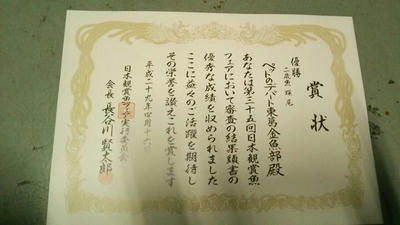 賞状
優勝
二歳魚 琉尾
ペットのデパート東葛金魚部殿
あなたは第三十五回日本観賞魚
フェアにおいて審査の結果頭書の
優秀な成績を収められました
ここに益々のご活躍を期待し
その栄誉を讃えこれを賞します
平成二十九年四月十六日
日本観賞魚フェア実行委員会
会長 長谷川賢太郎